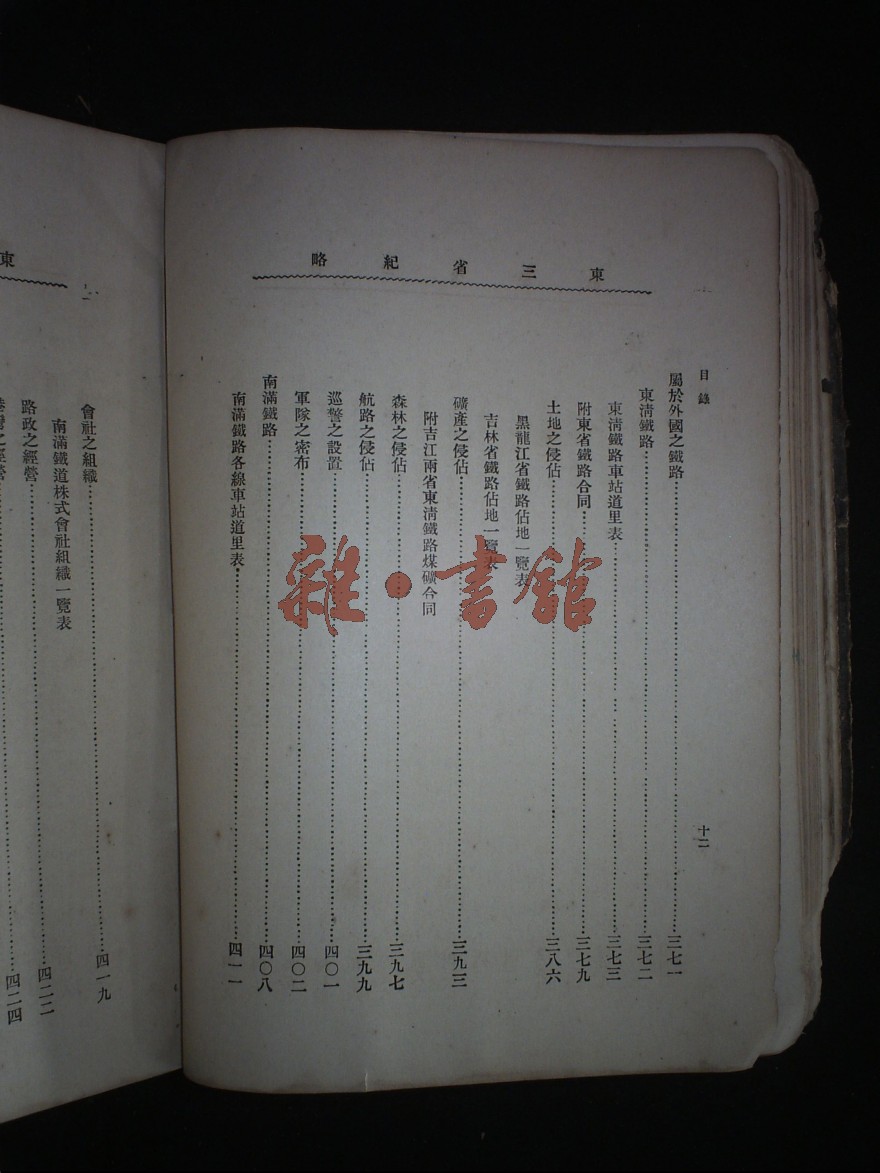 東三省紀略
目錄
十二
屬於外國之鐵路………三七一
東淸鐵路………三七二
東淸鐵路車站道里表………三七三
附東省鐵路合同………三七九
土地之侵佔………三八六
黑龍江省鐵路佔地一覽表
吉林省鐵路佔地一覽表
礦產之侵佔………三九三
附吉江兩省東淸鐵路煤礦合同
森林之侵佔………三九七
航路之侵佔………三九九
巡警之設置………四〇一
軍隊之密布………四〇二
南滿鐵路………四〇八
南滿鐵路各線車站道里表………四一一
東
會社之組織………四一九
南滿鐵道株式會社組織一覽表
路政之經營………四二二
之經營………四二四
雜·書館